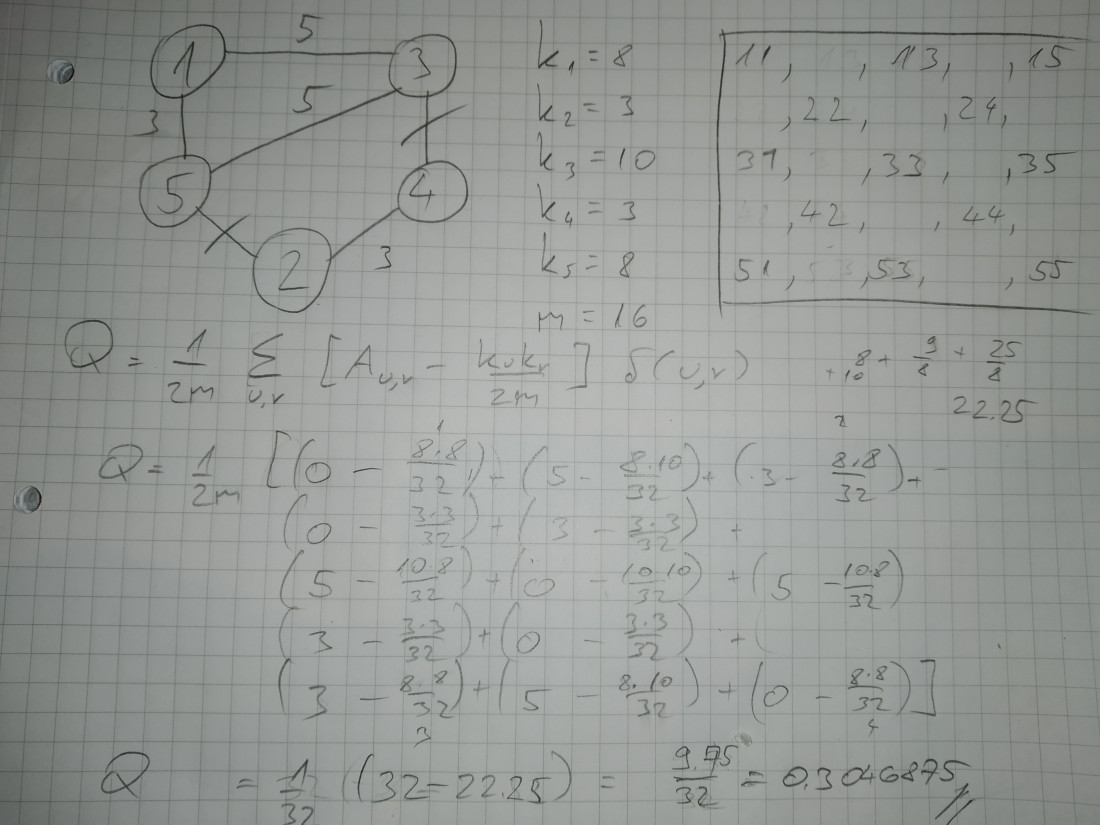 1 5 3
5
3
5 4
2 3
k₁ = 8
k₂ = 3
k₃ = 10
k₄ = 3
k₅ = 8
m = 16
11, , 13, , 15
, 22, , 24,
31, , 33, , 35
, 42, , 44,
51, , 53, , 55
Q = 1/2m Σ u,v [A u,v - kᵤkᵥ/2m] δ(u,v)
+ 8 + 9/8 + 25/8
+10
22.25
Q = 1/2m [(0 - 8.8/32) + (5 - 8.10/32) + (3 - 8.8/32) +
(0 - 3.3/32) + (3 - 3.3/32) +
(5 - 10.8/32) + (0 - 10.10/32) + (5 - 10.8/32)
(3 - 3.3/32) + (0 - 3.3/32) +
(3 - 8.8/32) + (5 - 8.10/32) + (0 - 8.8/32)]
Q = 1/32 (32 - 22.25) = 9.75/32 = 0.3046875